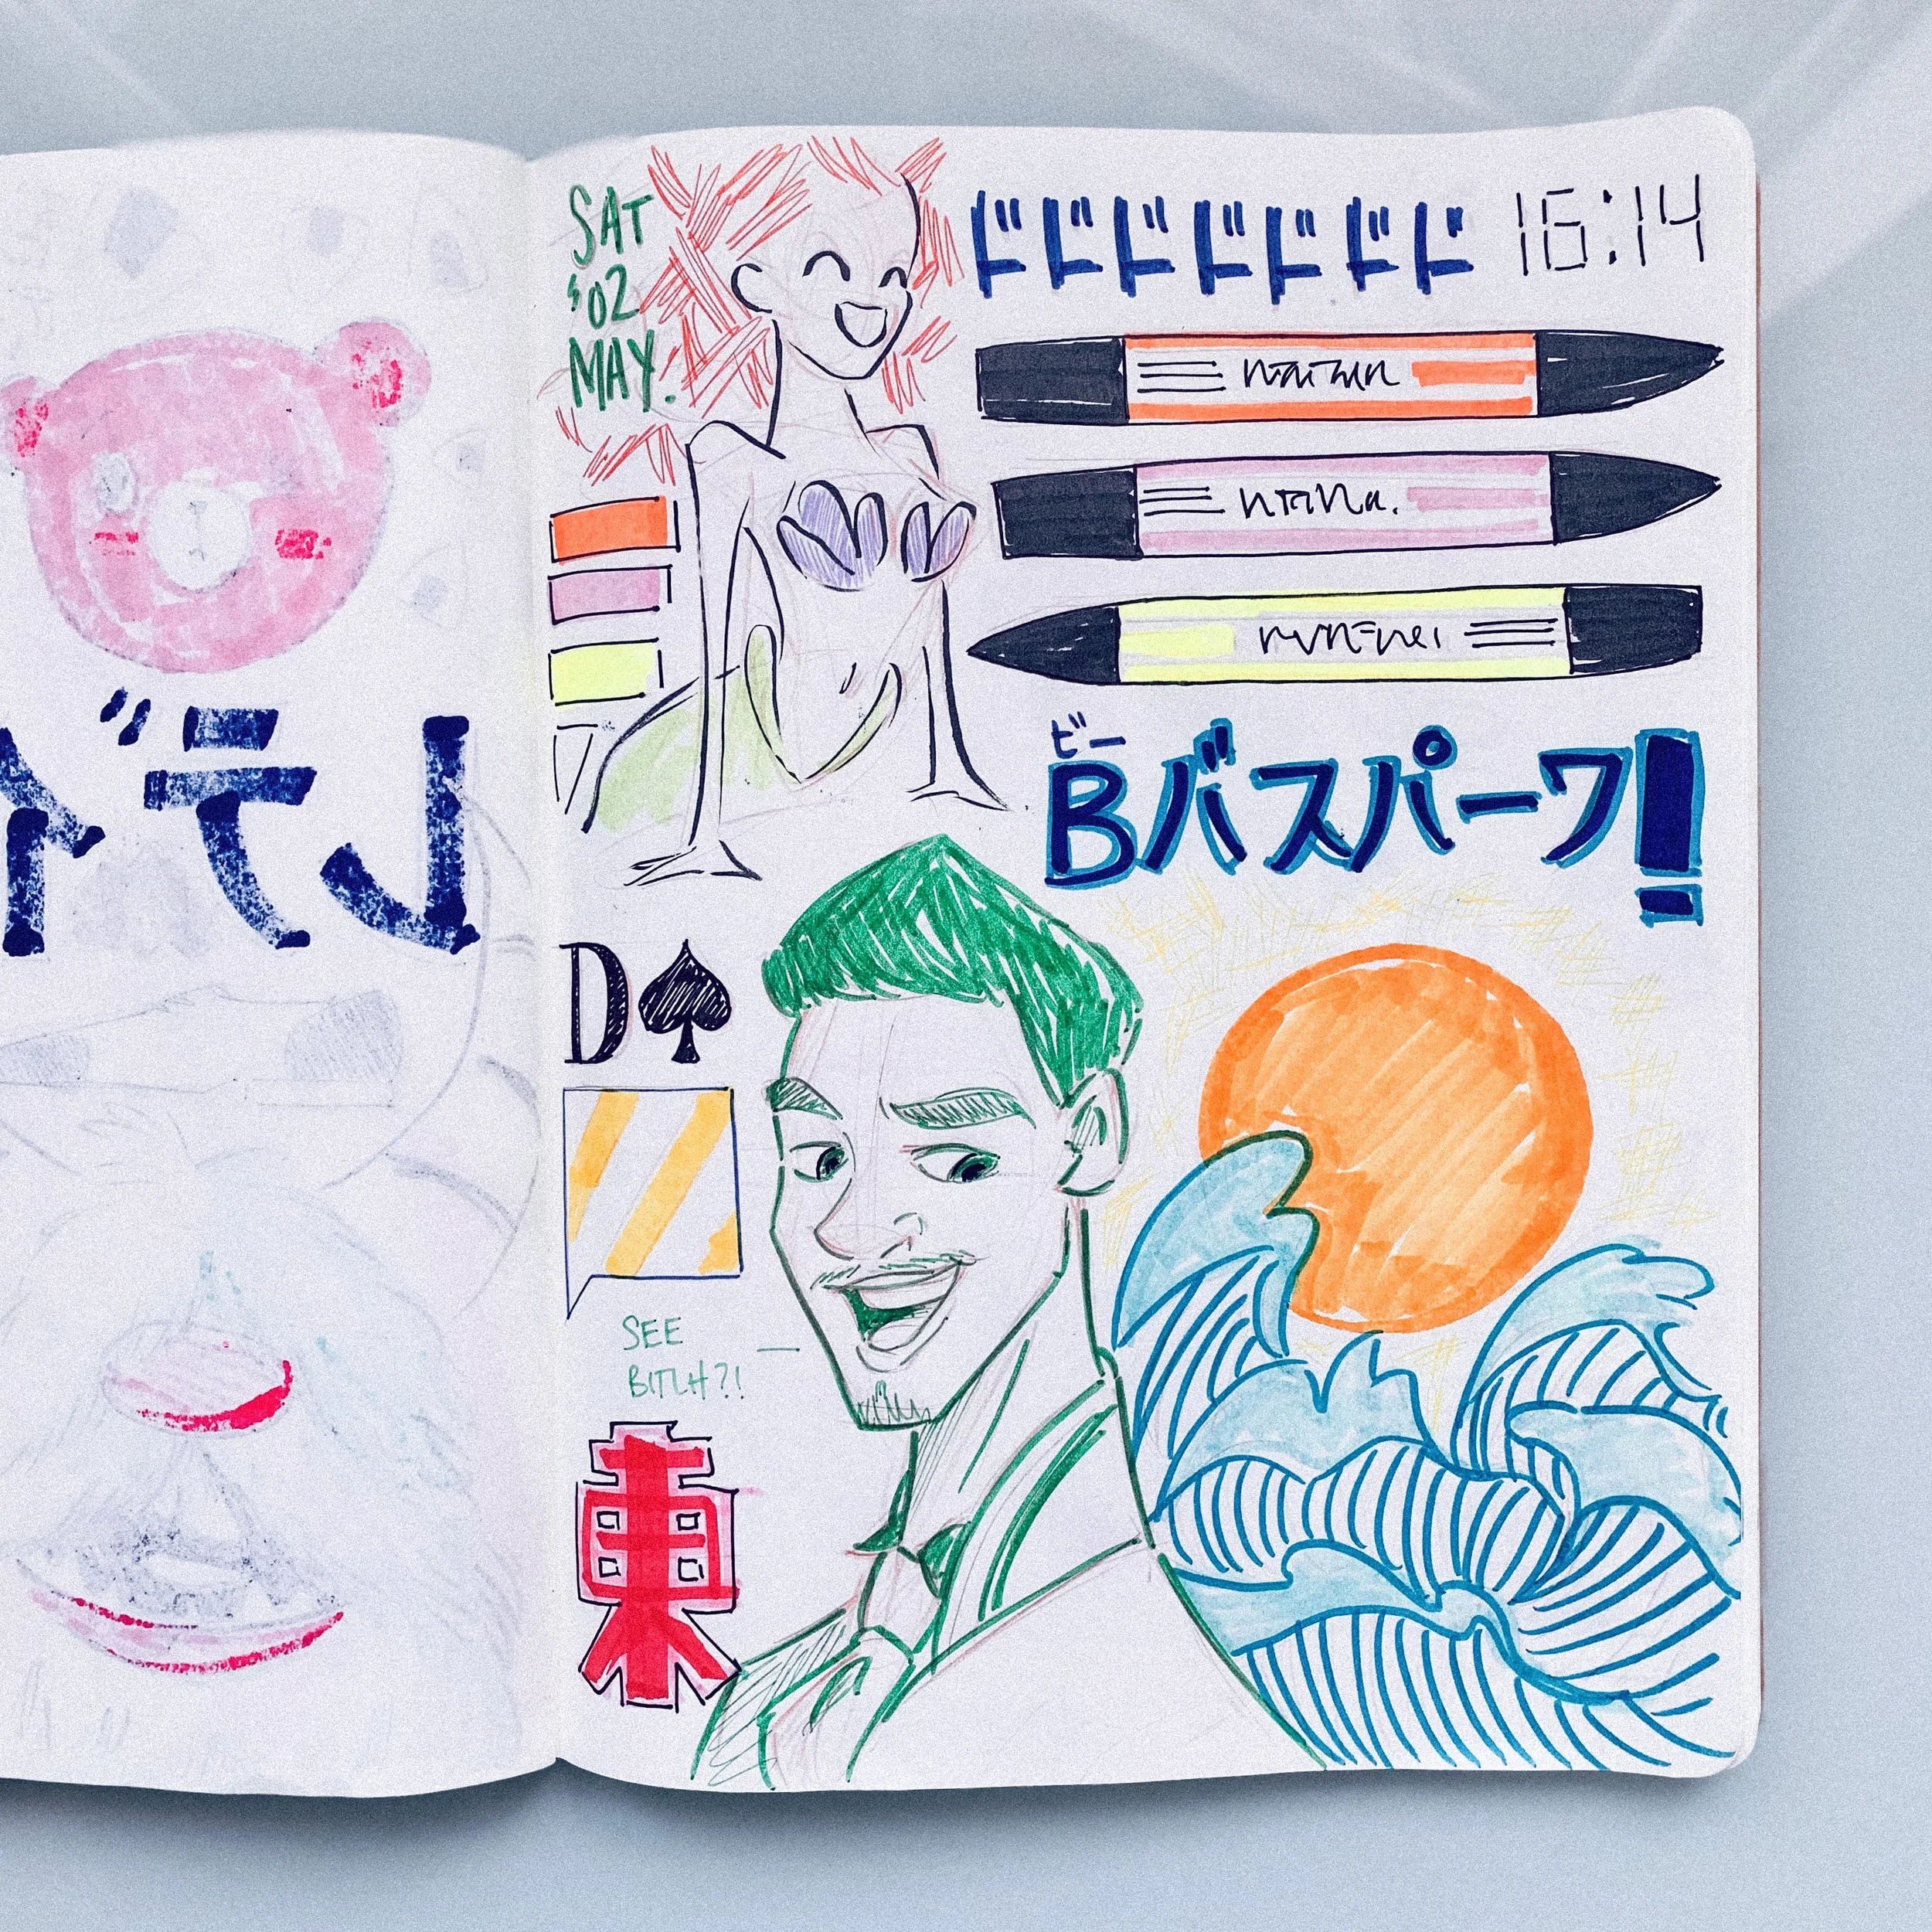 SAT
'02
MAY.
ドドドドドドド
16:14
ビー
Bバスパーワ!
D♠
SEE
BITCH?!
東